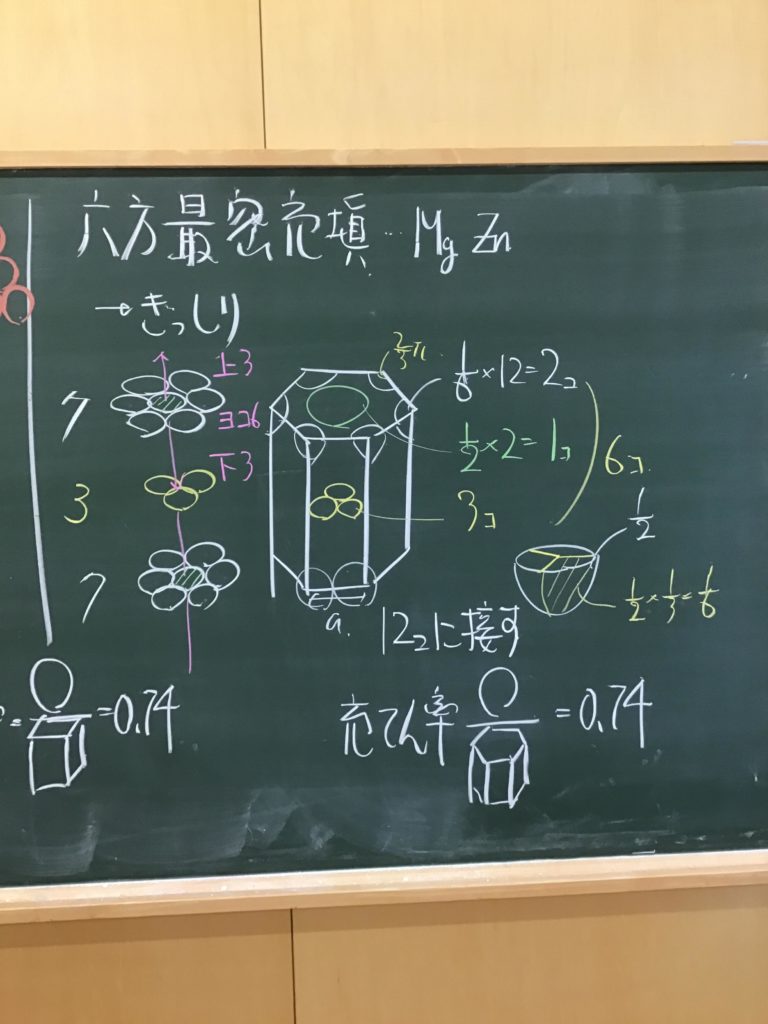 六方最密充填…Mg Zn
→きっしり
7
上3
ヨコ6
下3
3
7
2/3π
1/6×12=2コ
1/2×2=1コ
3コ
6コ
1/2
1/2×1/3=1/6
a.
12コに接す
=0.74
充てん率
=0.74